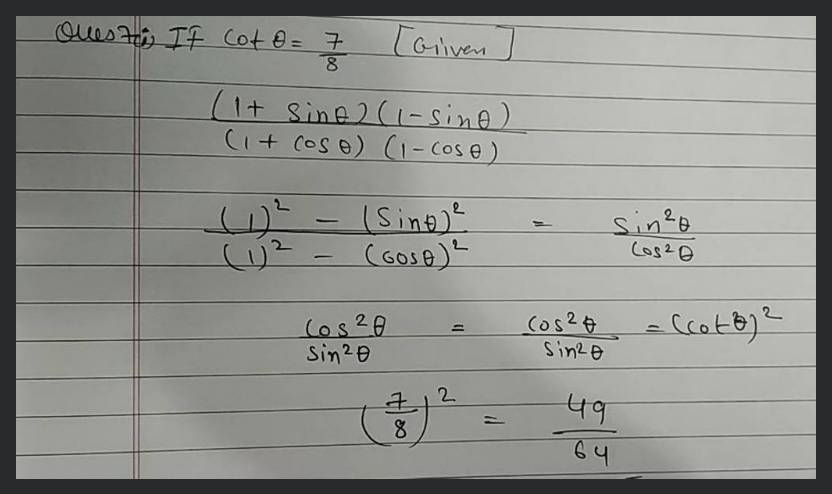 Ques 7(i) If cot θ = 7/8 [Given]
(1 + sinθ)(1 - sinθ) / (1 + cos θ) (1 - cosθ)
(1)² - (sinθ)² / (1)² - (cosθ)² = sin²θ / cos²θ
cos²θ / sin²θ = cos²θ / sin²θ = (cot θ)²
(7/8)² = 49/64